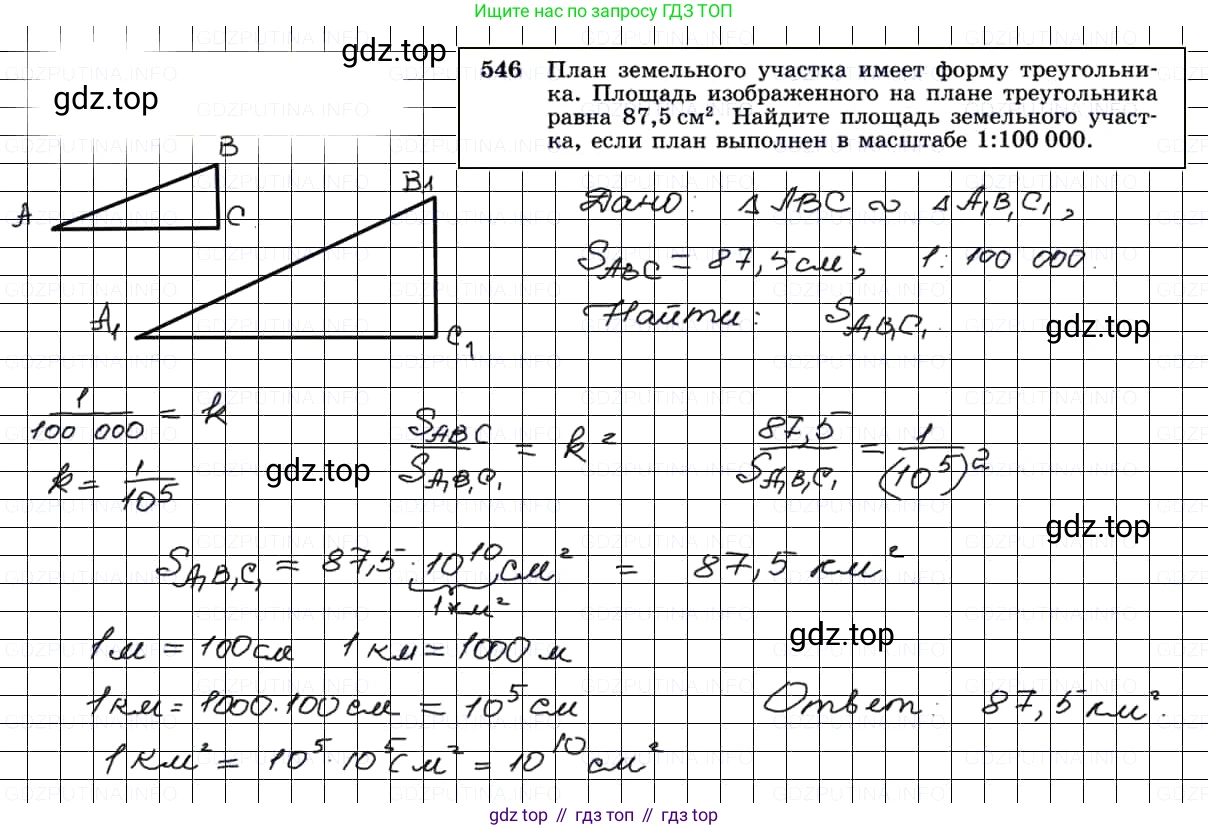 Ищите нас по запросу ГДЗ ТОП
gdz.top
gdz.top
546 План земельного участка имеет форму треугольни-
ка. Площадь изображенного на плане треугольника
равна 87,5 см². Найдите площадь земельного участ-
ка, если план выполнен в масштабе 1:100 000.
B
A
C
B1
A1
C1
Дано: Δ ABC ∾ Δ A₁B₁C₁,
S_ABC = 87,5 см², 1: 100 000.
Найти: S_A₁B₁C₁.
gdz.top
1/100 000 = k
S_ABC/S_A₁B₁C₁ = k²
87,5/S_A₁B₁C₁ = 1/(10⁵)²
k = 1/10⁵
gdz.top
gdz.top
S_A₁B₁C₁ = 87,5 · 10¹⁰ см² = 87,5 км²
1 км²
1 м = 100 см 1 км = 1000 м
gdz.top
1 км = 1000·100 см = 10⁵ см
Ответ: 87,5 км².
1 км² = 10⁵·10⁵ см² = 10¹⁰ см²
gdz.top // гдз топ // gdz top